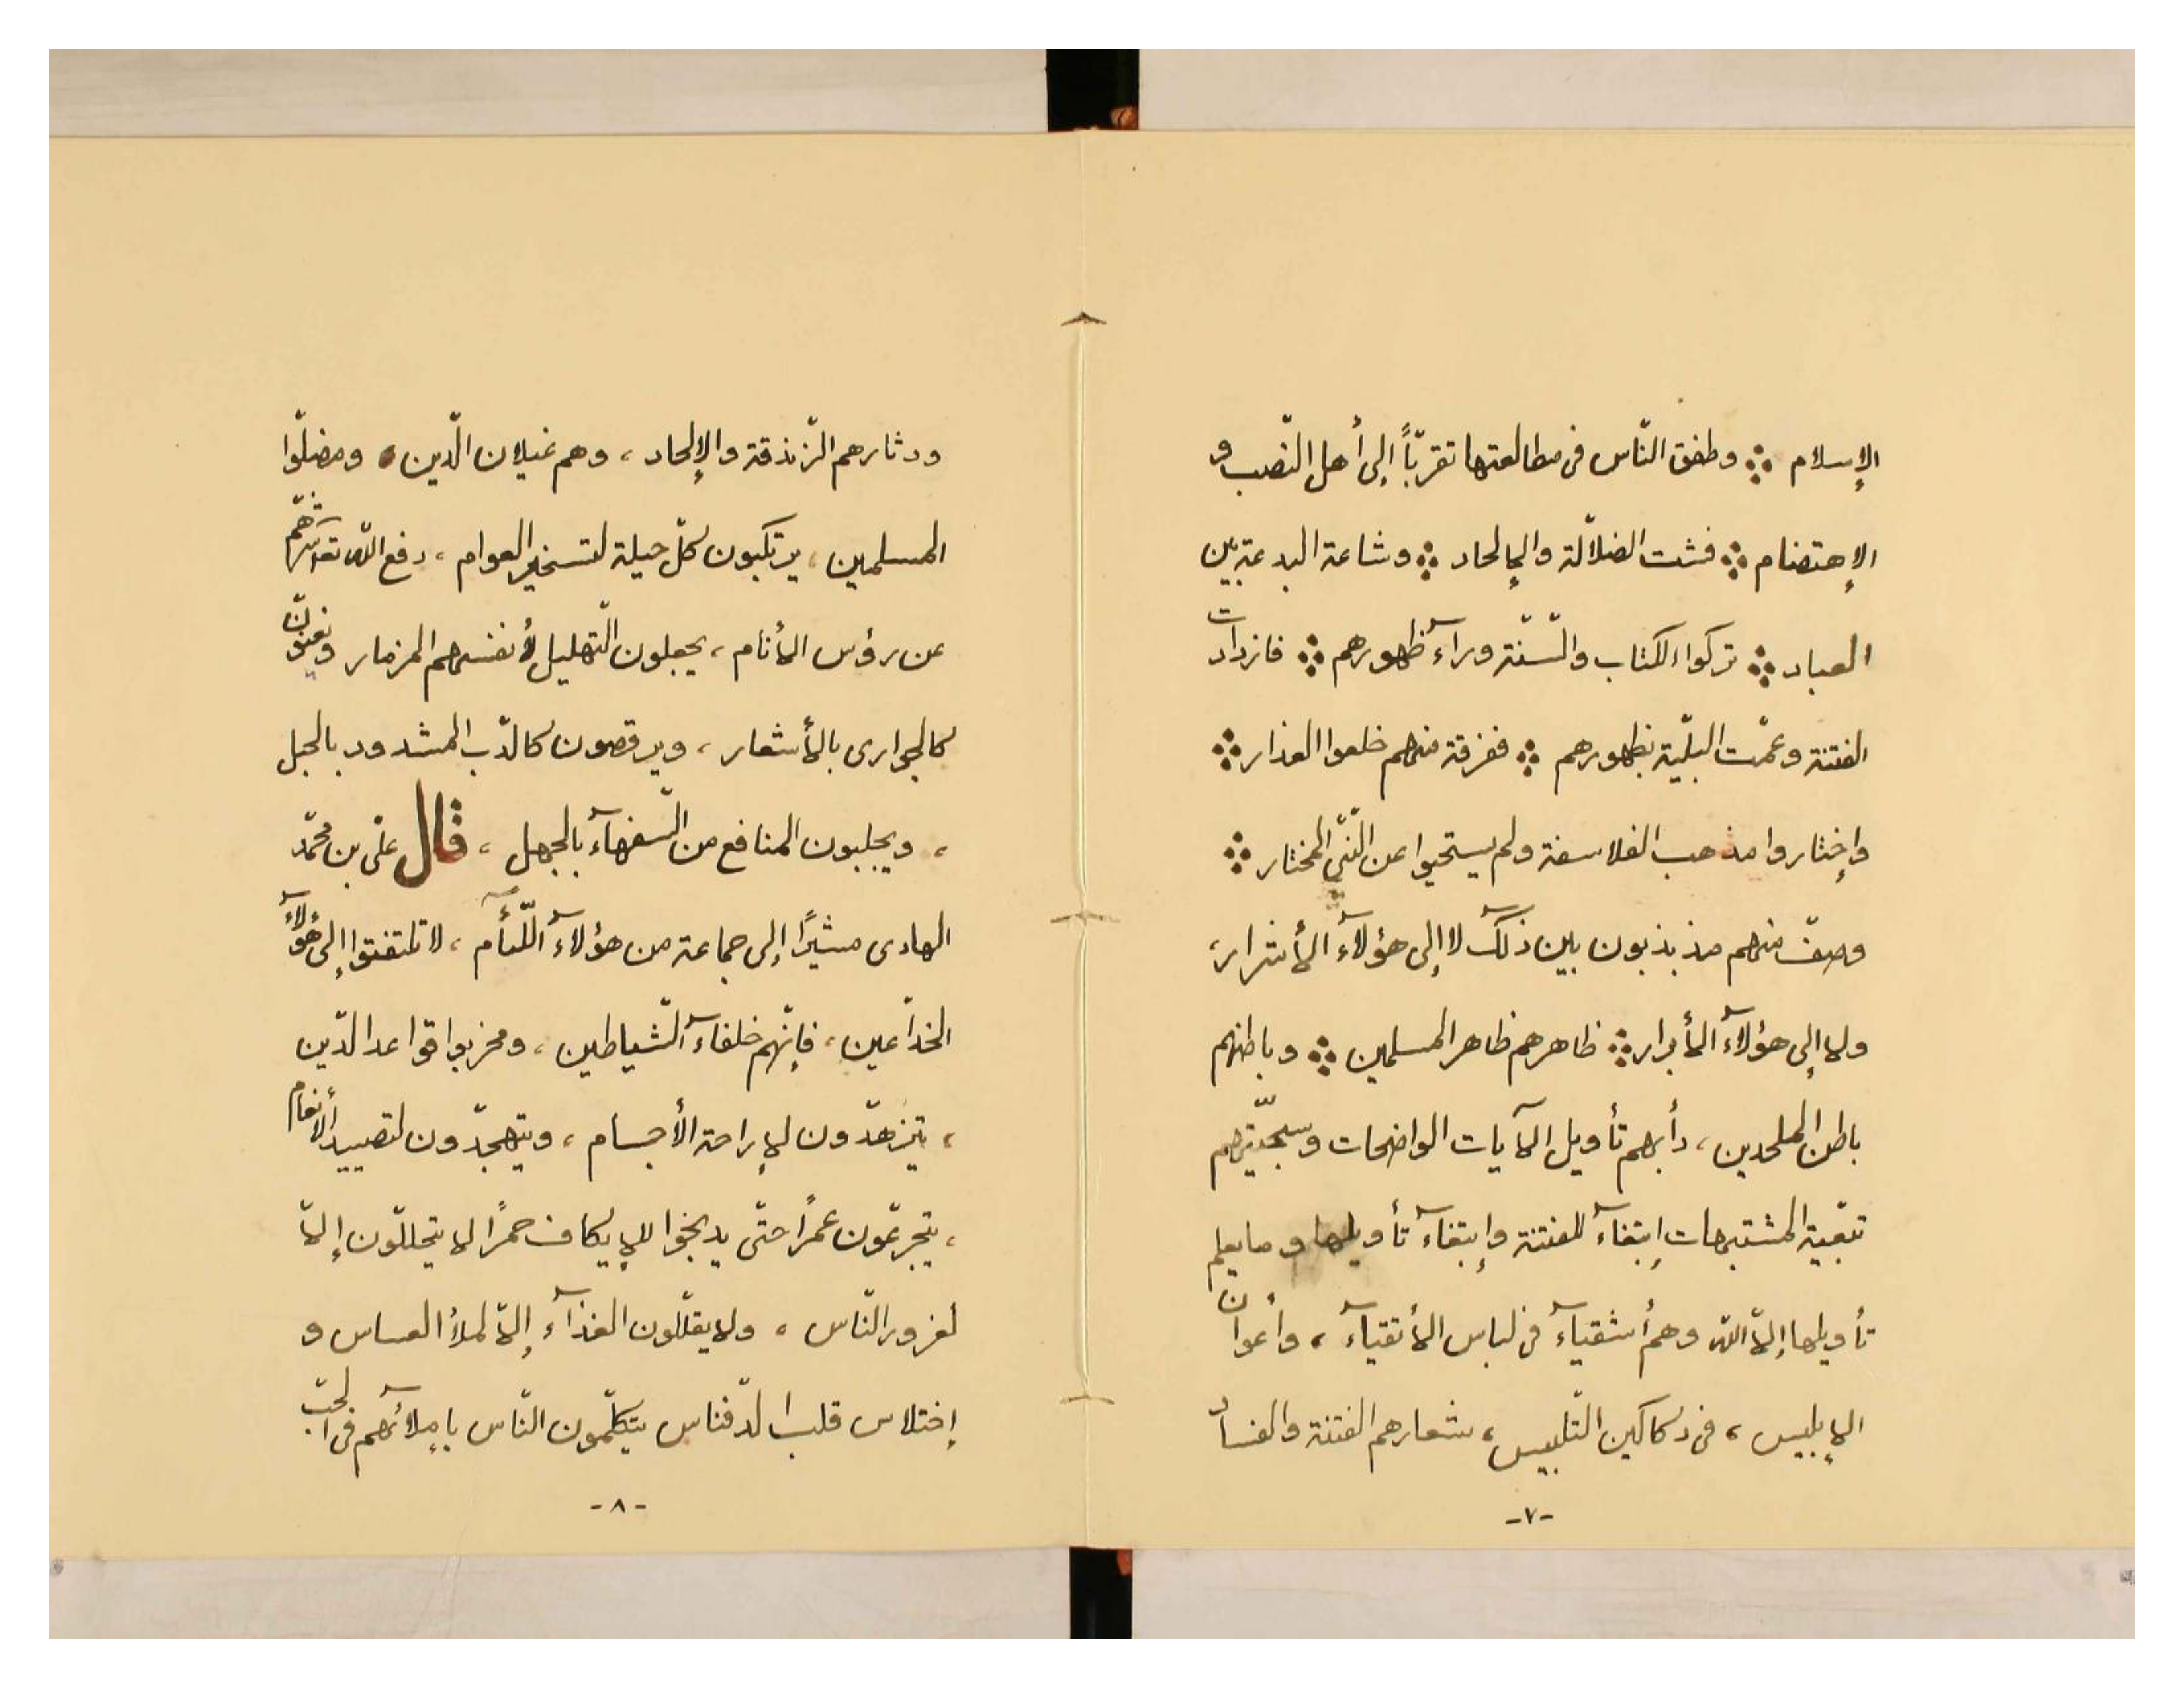 الإسلام ⁘ وطفق النّاس فى مطالعتها تقرّباً إلى أهل النّصب و
الإهتضام ⁘ فشت الضلالة والإلحاد ⁘ وشاعة البدعة بين
العباد ⁘ تركوا الكتاب والسّنّة ورآء ظهورهم ⁘ فازدادت
الفتنة وعمّت البليّة بظهورهم ⁘ ففرقة منهم خلعوا العذار ⁘
وإختاروا مذهب الفلاسفة ولم يستحيوا عن النّبّى المختار ⁘
وصفّ منهم مذبذبون بين ذلک لا إلى هؤلآء الأشرار،
ولا إلى هؤلآء الأبرار ⁘ ظاهرهم ظاهر المسلمين ⁘ وباطنهم
باطن الملحدين، دأبهم تأويل الآيات الواضحات وسجّيتهم
تبقية المشتبهات إبتغآء للفتنة وإبتغآء تأويلها وما يعلم
تأويلها إلاّ اللّه وهم أشقيآء فى لباس الأتقيآء، وأعوان
الإبليس، فى دكاكين التّلبيس، شعارهم الفتنة والفساد
-٧-
ودثارهم الزّندقة والإلحاد، وهم غيلان الدّين، ومضلّوا
المسلمين، يرتكبون لكلّ حيلة لتسخير العوام، دفع اللّه تعآ شرّهم
عن رؤس الأنام، يجعلون التّهليل لأنفسهم المزمار ونغنّون
كالجوارى بالأشعار، ويرقصون كالدّب المشدود بالحبل
، ويجلبون المنافع من السّفهآء بالجهل، قال علىّ بن محمّد
الهادى مشيرًا إلى جماعة من هؤلآء اللّئآم، لا تلتفتوا إلى هؤلآء
الخدّاعين، فإنّهم خلفآء الشّياطين، ومخربوا قواعد الدّين
، يتزهّدون لإراحة الأجسام، ويتهجّدون لتصييد الأنعام
، يتجرعّون عمرًا حتّى يدبخوا للإيكاف حمرًا لا يتحللّون إلاّ
لغرور النّاس، ولا يقلّلون الغذآء إلاّ لملأ العساس و
إختلاس قلب الدّفناس يتكلّمون النّاس بإملآئهم فى الحبّ
-٨-